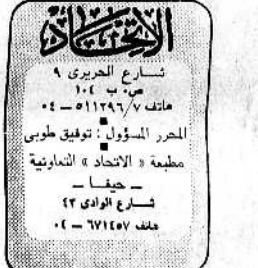 الاتحاد
شارع الحريرى ٩
ص٠ ب ١٠٤
هاتف ٥١١٢٩٦/٧ — ٠٤
المحرر المسؤول : توفيق طوبى
مطبعة « الاتحاد » التعاونية
— حيفا —
شارع الوادى ٤٣
هاتف ٦٧١٤٥٧ — ٠٤